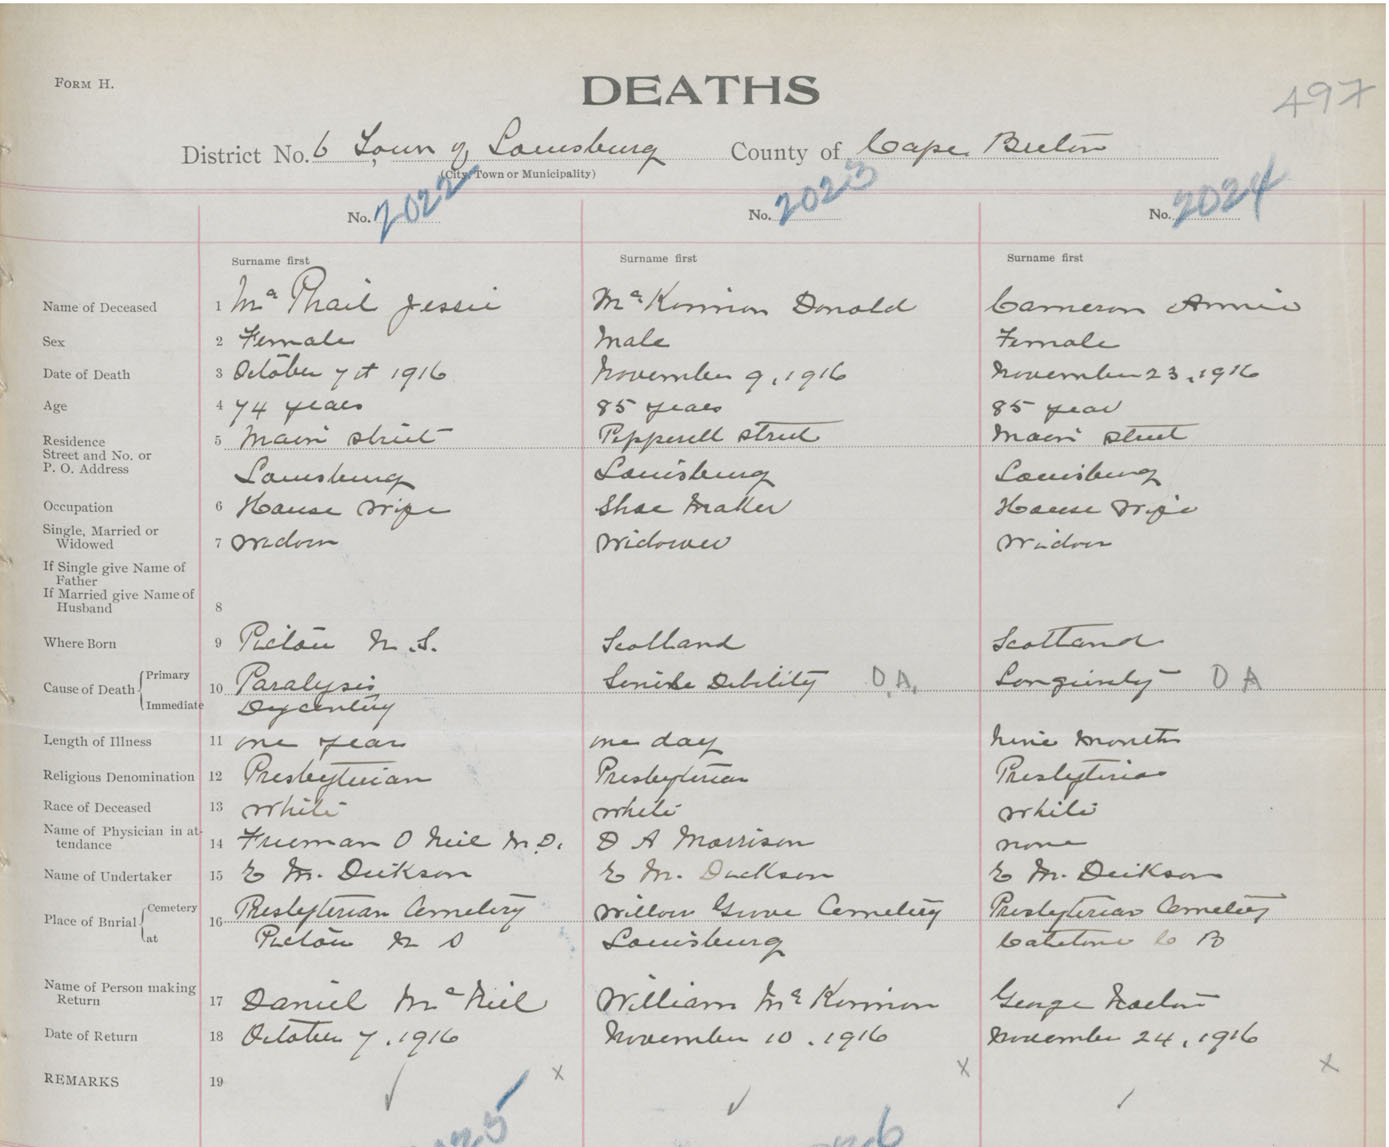 FORM H.
DEATHS
497
District No. 6 Town of Louisburg County of Cape Breton
(City, Town or Municipality)
No. 2022 No. 2023 No. 2024
Surname first Surname first Surname first
Name of Deceased 1 Mc Phail Jessie Mc Kinnon Donald Cameron Annie
Sex 2 Female Male Female
Date of Death 3 October 7th 1916 November 9, 1916 November 23, 1916
Age 4 74 years 85 years 85 year
Residence 5 Main street Pepperell street Main street
Street and No. or
P. O. Address Louisburg Louisburg Louisburg
Occupation 6 House Wife Shoe Maker House Wife
Single, Married or
Widowed 7 Widow Widower Widow
If Single give Name of
Father
If Married give Name of
Husband 8
Where Born 9 Pictou N.S. Scotland Scotland
Cause of Death Primary 10 Paralysis Senile Debility O.A. Longivity O A
Immediate Dycentery
Length of Illness 11 one year one day Nine Months
Religious Denomination 12 Presbyterian Presbyterian Presbyterian
Race of Deceased 13 White White White
Name of Physician in at-
tendance 14 Freeman O Neil M.D. D A Morrison none
Name of Undertaker 15 E M. Dickson E M. Dickson E M. Dickson
Place of Burial Cemetery 16 Presbyterian Cemetery Willow Grove Cemetery Presbyterian Cemetery
at Pictou N S Louisburg C B
Name of Person making
Return 17 Daniel Mc Neil William Mc Kinnon George
Date of Return 18 October 7, 1916 November 10, 1916 November 24, 1916
REMARKS 19 x x x